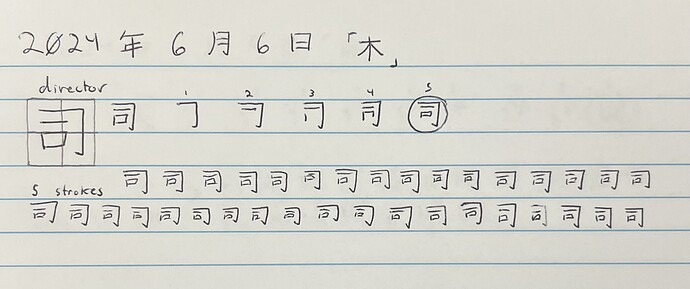 2024 年 6 月 6 日 「木」
director
1 2 3 4 5
司 司 司
司 司 司 司 司 司 司 司 司 司 司 司 司 司 司 司
5 strokes
司 司 司 司 司 司 司 司 司 司 司 司 司 司 司 司 司 司 司